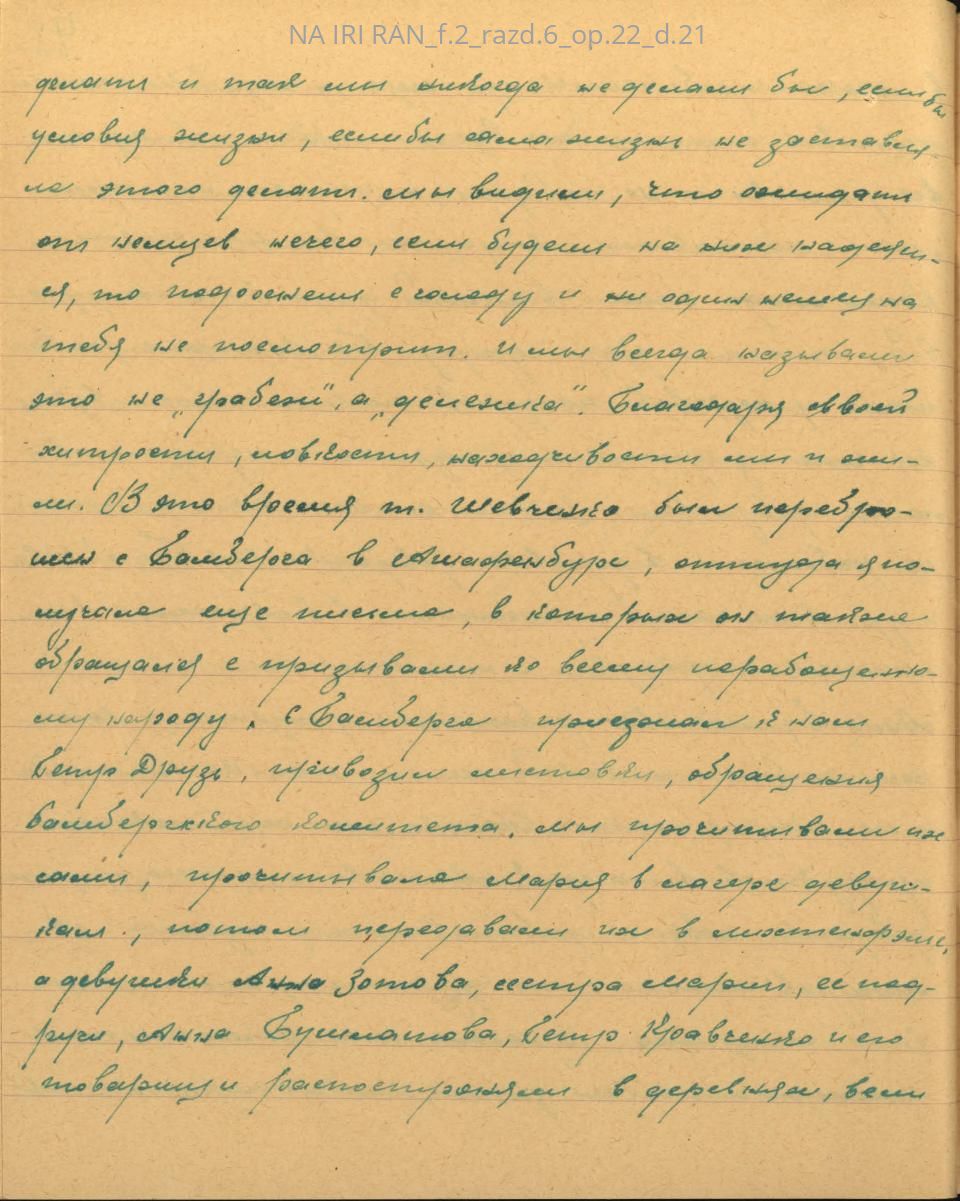 NA IRI RAN_f.2_razd.6_op.22_d.21
делать и так мы никогда не делали бы, если бы
условия жизни, если бы сама жизнь не заставля-
ла этого делать. Мы видели, что ожидать
от немцев нечего, если будем на них надеять-
ся, то подохнем с голоду и ни один немец на
тебя не посмотрит. И мы всегда называли
это не "грабеж", а "дележка". Благодаря своей
хитрости, ловкости, находчивости мы и жи-
ли. В это время т. Шевченко был перебро-
шен с Бамберга в Ашафенбург, оттуда я по-
лучала еще письма, в которых он также
обращался с призывами ко всему порабощенно-
му народу. С Бамберга приезжал к нам
Петр Друзь, привозил листовки, обращения
Бамбергского комитета. Мы прочитывали их
сами, прочитывала Мария в лагере девуш-
кам, потом передавали их в Лихтенфельс,
а девушки Анна Зотова, сестра Марии, ее под-
руги, Анна Бушматова, Петр Кравченко и его
товарищи распостраняли в деревнях, вели